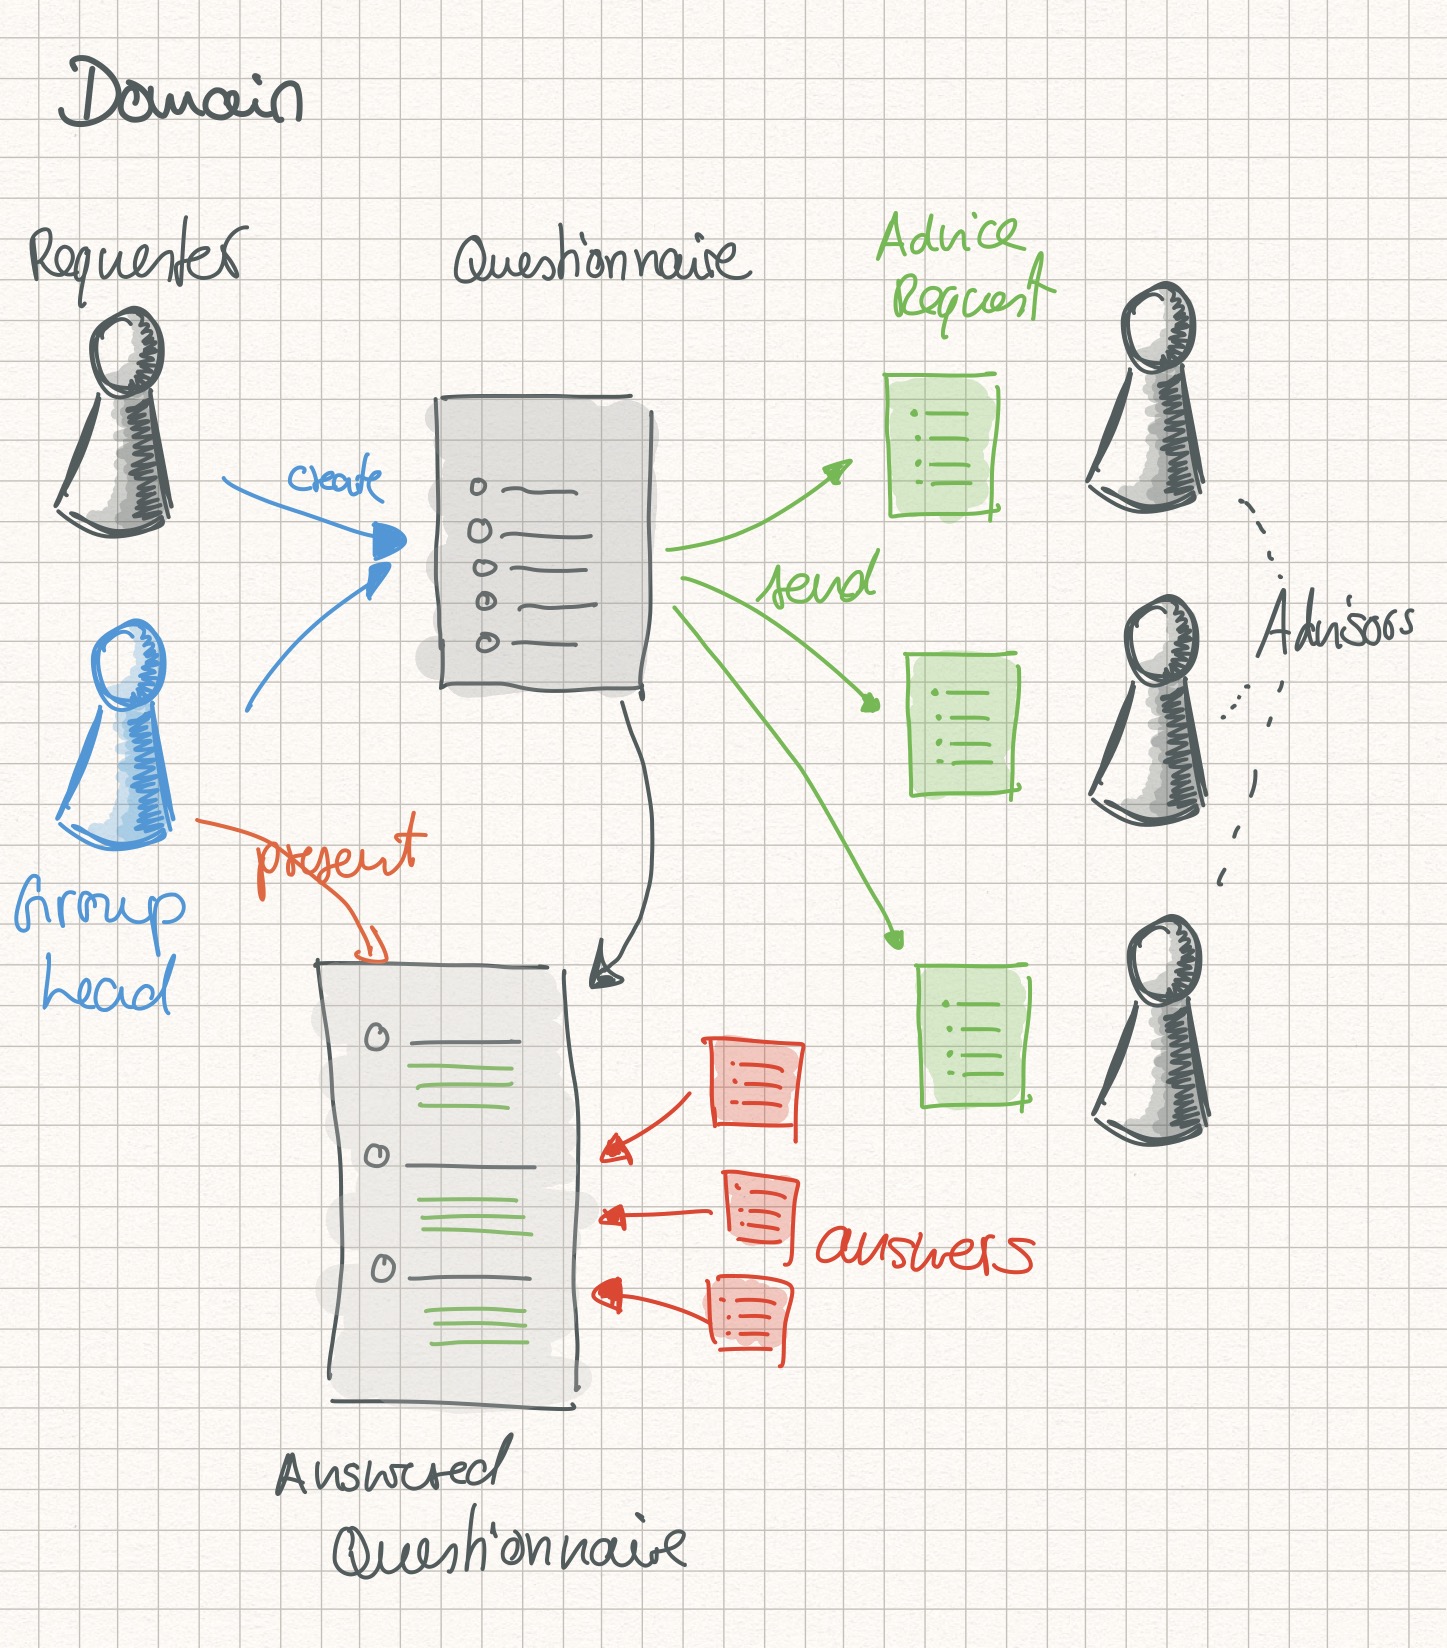 Domain
Requester
Questionnaire
Advice
Request
create
send
Advisors
present
Group
head
answers
Answered
Questionnaire